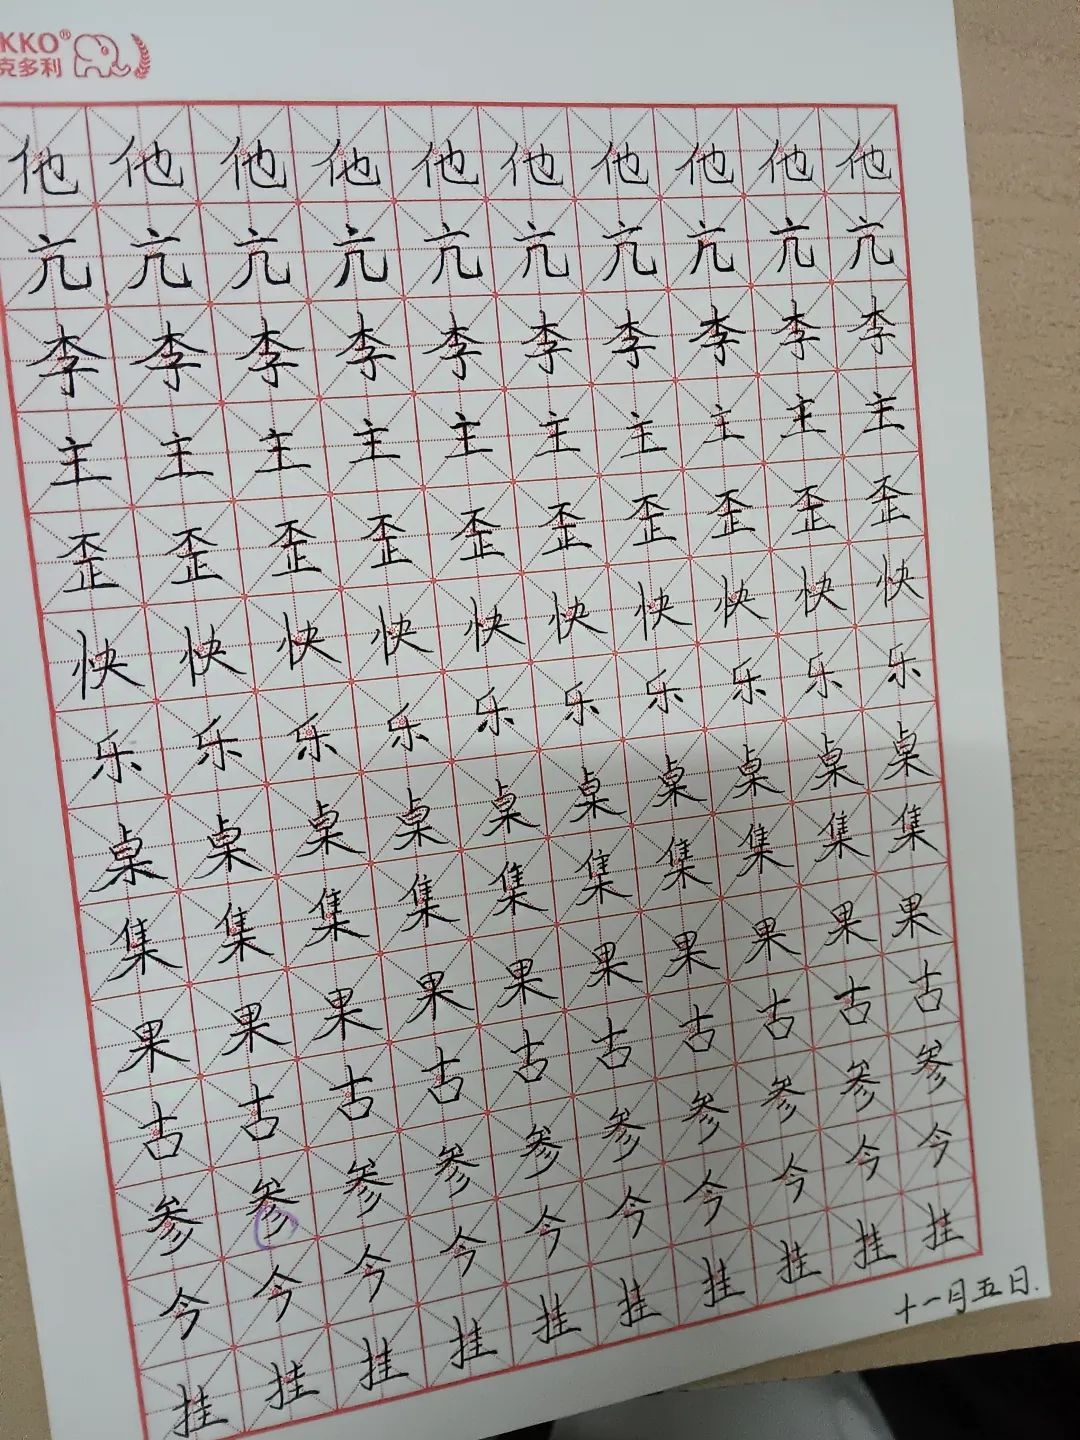 KKO®
克多利
他他他他他他他他他他
亢亢亢亢亢亢亢亢亢亢
李李李李李李李李李李
主主主主主主主主主主
歪歪歪歪歪歪歪歪歪歪
快快快快快快快快快快
乐乐乐乐乐乐乐乐乐乐
桌桌桌桌桌桌桌桌桌桌
集集集集集集集集集集
果果果果果果果果果果
古古古古古古古古古古
参参参参参参参参参参
今今今今今今今今今今
挂挂挂挂挂挂挂挂挂挂
十一月五日.